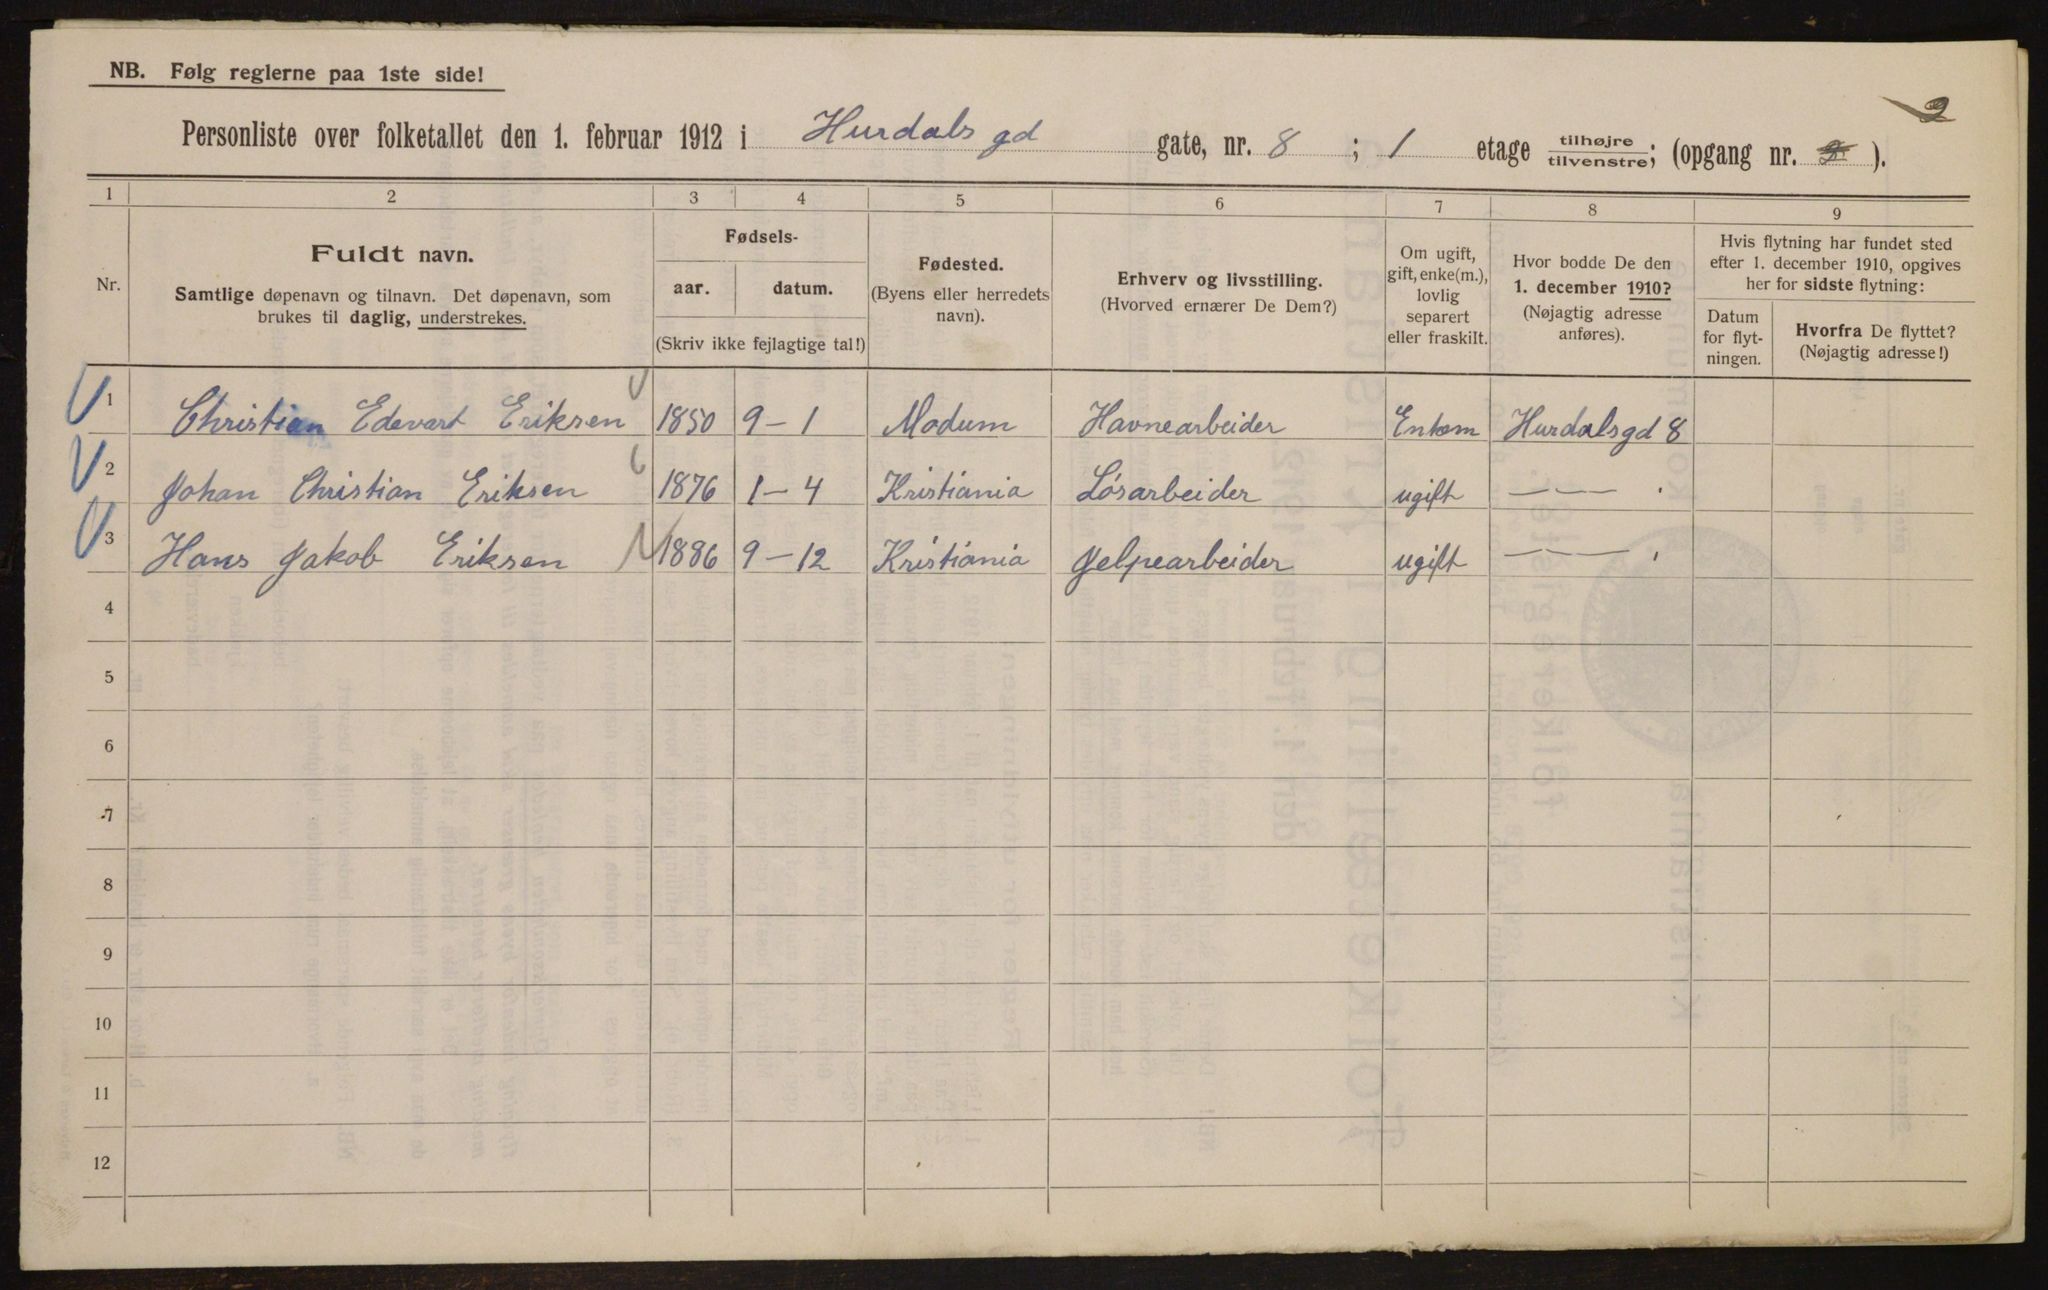 NB. Følg reglerne paa 1ste side!
2
Personliste over folketallet den 1. februar 1912 i Hurdals gd gate, nr. 8 ; 1 etage tilhøjre/tilvenstre; (opgang nr. ).
1 2 3 4 5 6 7 8 9
Nr.
Fuldt navn.
Samtlige døpenavn og tilnavn. Det døpenavn, som
brukes til daglig, understrekes.
Fødsels-
aar. datum.
(Skriv ikke fejlagtige tal!)
Fødested.
(Byens eller herredets
navn).
Erhverv og livsstilling.
(Hvorved ernærer De Dem?)
Om ugift,
gift, enke(m.),
lovlig
separert
eller fraskilt.
Hvor bodde De den
1. december 1910?
(Nøjagtig adresse
anføres).
Hvis flytning har fundet sted
efter 1. december 1910, opgives
her for sidste flytning:
Datum
for flyt-
ningen.
Hvorfra De flyttet?
(Nøjagtig adresse!)
1 Christian Edevart Eriksen 1850 9-1 Modum Havnearbeider Enkem Hurdalsgd 8
2 Johan Christian Eriksen 1876 1-4 Kristiania Løsarbeider ugift — — —
3 Hans Jakob Eriksen 1886 9-12 Kristiania Jelpearbeider ugift — — —
4
5
6
7
8
9
10
11
12